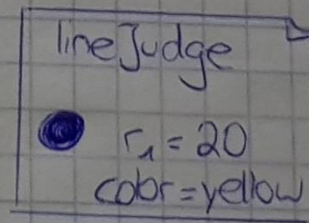 lineJudge
r₁ = 20
color = yellow